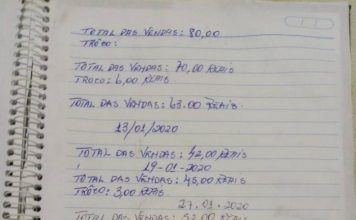 TOTAL DAS VENDAS: 80,00
TRÔCO:
TOTAL DAS VENDAS: 70,00 REAIS
TROCO: 6,00 REAIS
TOTAL DAS VENDAS: 63.00 REAIS.
13/01/2020
TOTAL DAS VENDAS: 42,00 REAIS
19-01-2020
TOTAL DAS VENDAS: 45,00 REAIS
TRÔCO: 3,00 REAIS
27.01.2020
TOTAL DAS VENDAS: 52,00 REAIS